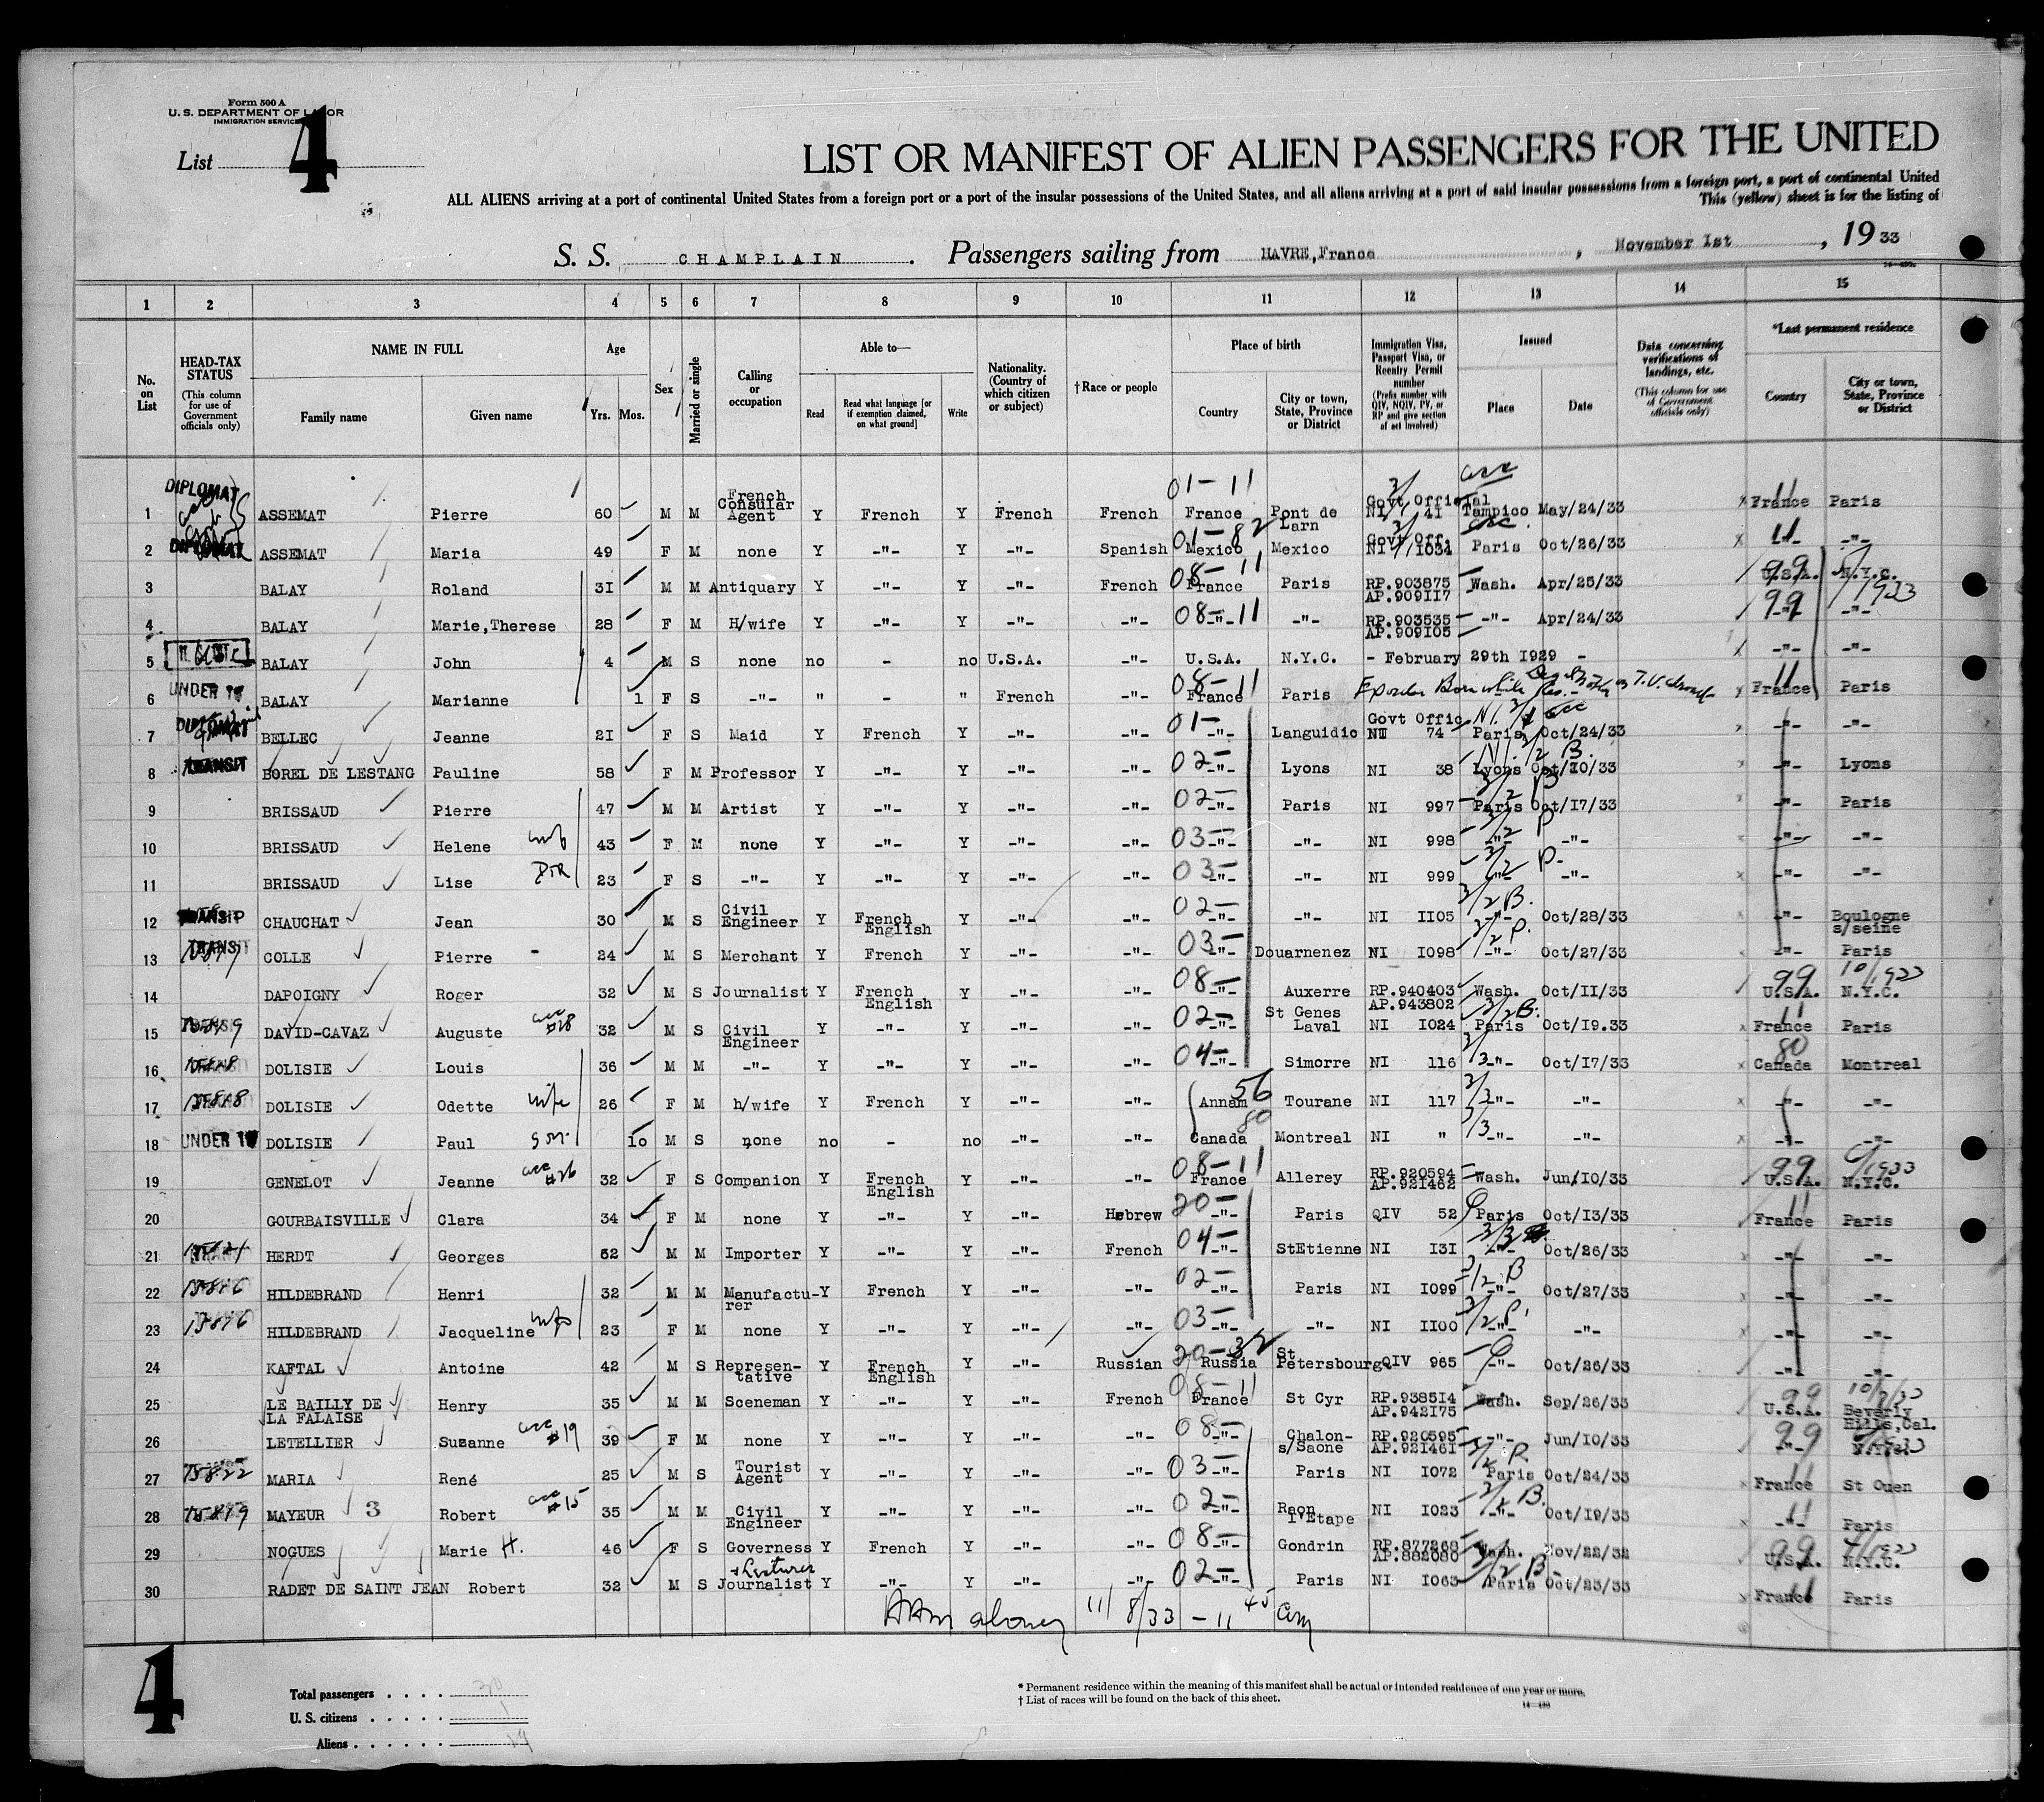 Form 500 A
U. S. DEPARTMENT OF LABOR
IMMIGRATION SERVICE
List 4
LIST OR MANIFEST OF ALIEN PASSENGERS FOR THE UNITED
ALL ALIENS arriving at a port of continental United States from a foreign port or a port of the insular possessions of the United States, and all aliens arriving at a port of said insular possessions from a foreign port, a port of continental United
This (yellow) sheet is for the listing of
S. S. CHAMPLAIN . Passengers sailing from HAVRE,France , November 1st , 19 33
1 2 3 4 5 6 7 8 9 10 11 12 13 14 15
No. on List
HEAD-TAX STATUS (This column for use of Government officials only)
NAME IN FULL Family name Given name
Age Yrs. Mos.
Sex
Married or single
Calling or occupation
Able to— Read Read what language [or if exemption claimed, on what ground] Write
Nationality. (Country of which citizen or subject)
†Race or people
Place of birth Country City or town, State, Province or District
Immigration Visa, Passport Visa, or Reentry Permit number (Prefix number with QIV, NQIV, PV, or RP and give section of act involved)
Issued Place Date
Data concerning verifications of landings, etc. (This column for use of Government officials only)
*Last permanent residence Country City or town, State, Province or District
1 DIPLOMAT ASSEMAT Pierre 60 M M French Consular Agent Y French Y French French 01-11 France Pont de Larn Govt Official NI 41 Tampico May/24/33 France Paris
2 DIPLOMAT ASSEMAT Maria 49 F M none Y -"- Y -"- Spanish 01-82 Mexico Mexico Govt Off. NI 1034 Paris Oct/26/33 11 -"-
3 BALAY Roland 31 M M Antiquary Y -"- Y -"- French 08-11 France Paris RP.903875 AP.909117 Wash. Apr/25/33 99 U.S.A. N.Y.C.
4 BALAY Marie,Therese 28 F M H/wife Y -"- Y -"- -"- 08-11 -"- -"- RP.903535 AP.909105 -"- Apr/24/33 99 -"- -"-
5 BALAY John 4 M S none no - no U.S.A. -"- U.S.A. N.Y.C. - February 29th 1929 - -"- -"-
6 UNDER BALAY Marianne 1 F S -"- " - " French -"- 08-11 France Paris 11 France Paris
7 DIPLOMAT BELLEC Jeanne 21 F S Maid Y French Y -"- -"- 01- -"- Languidic Govt Offic NI 74 Paris Oct/24/33 -"- -"-
8 TRANSIT BOREL DE LESTANG Pauline 58 F M Professor Y -"- Y -"- -"- 02- -"- Lyons NI 38 Lyons Oct/10/33 -"- Lyons
9 BRISSAUD Pierre 47 M M Artist Y -"- Y -"- -"- 02- -"- Paris NI 997 Paris Oct/17/33 -"- Paris
10 BRISSAUD Helene 43 F M none Y -"- Y -"- -"- 03- -"- -"- NI 998 -"- -"- -"- -"-
11 BRISSAUD Lise 23 F S -"- Y -"- Y -"- -"- 03- -"- -"- NI 999 -"- -"- -"- -"-
12 CHAUCHAT Jean 30 M S Civil Engineer Y French English Y -"- -"- 02- -"- -"- NI 1105 -"- Oct/28/33 -"- Boulogne s/seine
13 COLLE Pierre 24 M S Merchant Y French Y -"- -"- 03- -"- Douarnenez NI 1098 -"- Oct/27/33 -"- Paris
14 DAPOIGNY Roger 32 M S Journalist Y French English Y -"- -"- 08- -"- Auxerre RP.940403 AP.943802 Wash. Oct/11/33 99 U.S.A. N.Y.C.
15 DAVID-CAVAZ Auguste acc #28 32 M S Civil Engineer Y -"- Y -"- -"- 02- -"- St Genes Laval NI 1024 Paris Oct/19.33 11 France Paris
16 DOLISIE Louis 36 M M -"- Y -"- Y -"- -"- 04- -"- Simorre NI 116 -"- Oct/17/33 80 Canada Montreal
17 DOLISIE Odette wife 26 F M h/wife Y French Y -"- -"- 56 Annam Tourane NI 117 -"- -"- -"- -"-
18 UNDER DOLISIE Paul son 10 M S none no - no -"- -"- 80 Canada Montreal NI " -"- -"- -"- -"-
19 GENELOT Jeanne acc #26 32 F S Companion Y French English Y -"- -"- 08-11 France Allerey RP.920594 AP.921462 Wash. Jun/10/33 99 U.S.A. N.Y.C.
20 GOURBAISVILLE Clara 34 F M none Y -"- Y -"- Hebrew 20- -"- Paris QIV 52 Paris Oct/13/33 11 France Paris
21 HERDT Georges 52 M M Importer Y -"- Y -"- French 04- -"- StEtienne NI 131 -"- Oct/26/33 -"- -"-
22 HILDEBRAND Henri 32 M M Manufacturer Y French Y -"- -"- 02- -"- Paris NI 1099 -"- Oct/27/33 -"- -"-
23 HILDEBRAND Jacqueline 23 F M none Y -"- Y -"- -"- 03- -"- -"- NI 1100 -"- -"- -"- -"-
24 KAFTAL Antoine 42 M S Representative Y French English Y -"- Russian 20-32 Russia St Petersbourg QIV 965 -"- Oct/26/33 -"- -"-
25 LE BAILLY DE LA FALAISE Henry 35 M M Sceneman Y -"- Y -"- French 08-11 France St Cyr RP.938514 AP.942175 Wash. Sep/26/33 99 U.S.A. Beverly Hills,Cal.
26 LETELLIER Suzanne acc #19 39 F M none Y -"- Y -"- -"- 08- -"- Chalon-s/Saone RP.920595 AP.921461 -"- Jun/10/33 99 -"- N.Y.C.
27 15822 MARIA René 25 M S Tourist Agent Y -"- Y -"- -"- 03- -"- Paris NI 1072 Paris Oct/24/33 11 France St Ouen
28 15819 MAYEUR 3 Robert acc #15 35 M M Civil Engineer Y -"- Y -"- -"- 02- -"- Raon l'Etape NI 1023 -"- Oct/19/33 11 -"- Paris
29 NOGUES Marie H. 46 F S Governess Y French Y -"- -"- 08- -"- Gondrin RP.877268 AP.882080 Wash. Nov/22/32 99 U.S.A. N.Y.C.
30 RADET DE SAINT JEAN Robert 32 M S Journalist + Lecturer Y -"- Y -"- -"- 02- -"- Paris NI 1063 Paris Oct/23/33 11 France Paris
11/8/33 - 11 45 am
4
Total passengers . . . . 30
U. S. citizens . . . . . 1
Aliens . . . . . .
* Permanent residence within the meaning of this manifest shall be actual or intended residence of one year or more.
† List of races will be found on the back of this sheet.